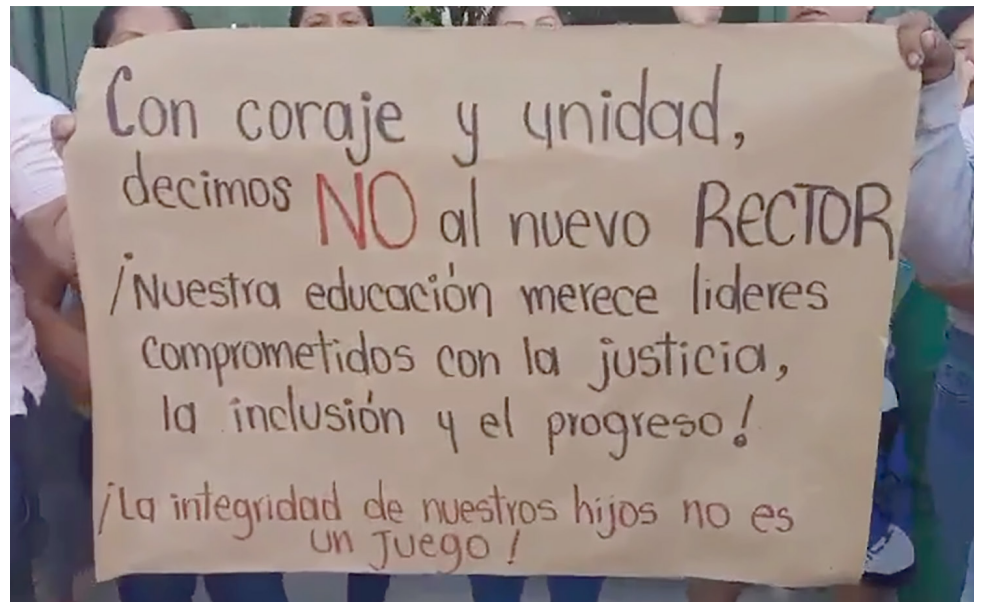 Con coraje y unidad,
decimos NO al nuevo RECTOR
¡Nuestra educación merece lideres
comprometidos con la justicia,
la inclusión y el progreso!
¡La integridad de nuestros hijos no es
un juego!